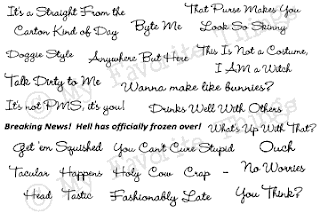 It's a Straight From the
Carton Kind of Day
Byte Me
That Purse Makes You
Look So Skinny
Doggie Style
Anywhere But Here
This Is Not a Costume,
I AM a Witch
Talk Dirty to Me
Wanna make like bunnies?
It's not PMS, it's you!
Drinks Well With Others
Breaking News! Hell has officially frozen over!
What's Up With That?
Get 'em Squished
You Can't Cure Stupid
Ouch
Tacular Happens Holy Cow Crap - No Worries
Head Tastic Fashionably Late You Think?
© My Favorite Things
© My Favorite Things